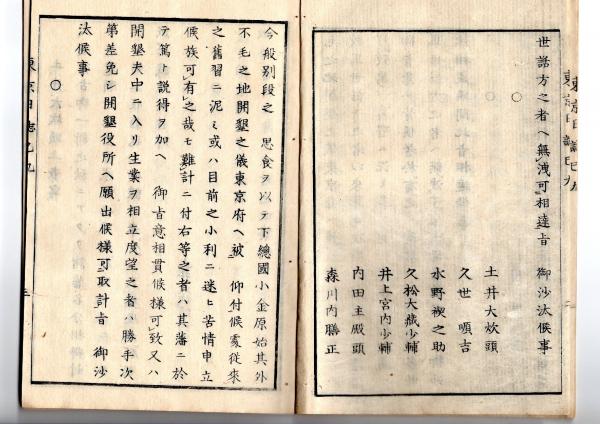 東京日誌巳九
世話方之者ヘ無洩可相達旨 御沙汰候事
○
土井大炊頭
久世順吉
水野禊之助
久松大蔵少輔
井上宮内少輔
内田主殿頭
森川内膳正
今般別段之 思食ヲ以テ下總國小金原始其外
不毛之地開墾之儀東京府ヘ被 仰付候處従来
之舊習ニ泥ミ或ハ目前之小利ニ迷ヒ苦情申立
候族可有之哉モ難計ニ付右等之者ハ其藩ニ於
テ篤ト説得ヲ加ヘ 御旨意相貫候様可致又ハ
開墾夫中ニ入リ生業ヲ相立度望之者ハ勝手次
第差免シ開墾役所ヘ願出候様可取計旨 御沙
汰候事
○
東京日誌巳九